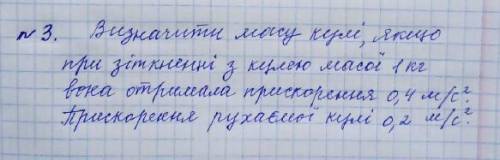 №3. Визначити масу кулі, якщо
при зіткненні з кулею масої 1 кг
вона отримала прискорення 0,4 м/с².
Прискорення рухаємої кулі 0,2 м/с².